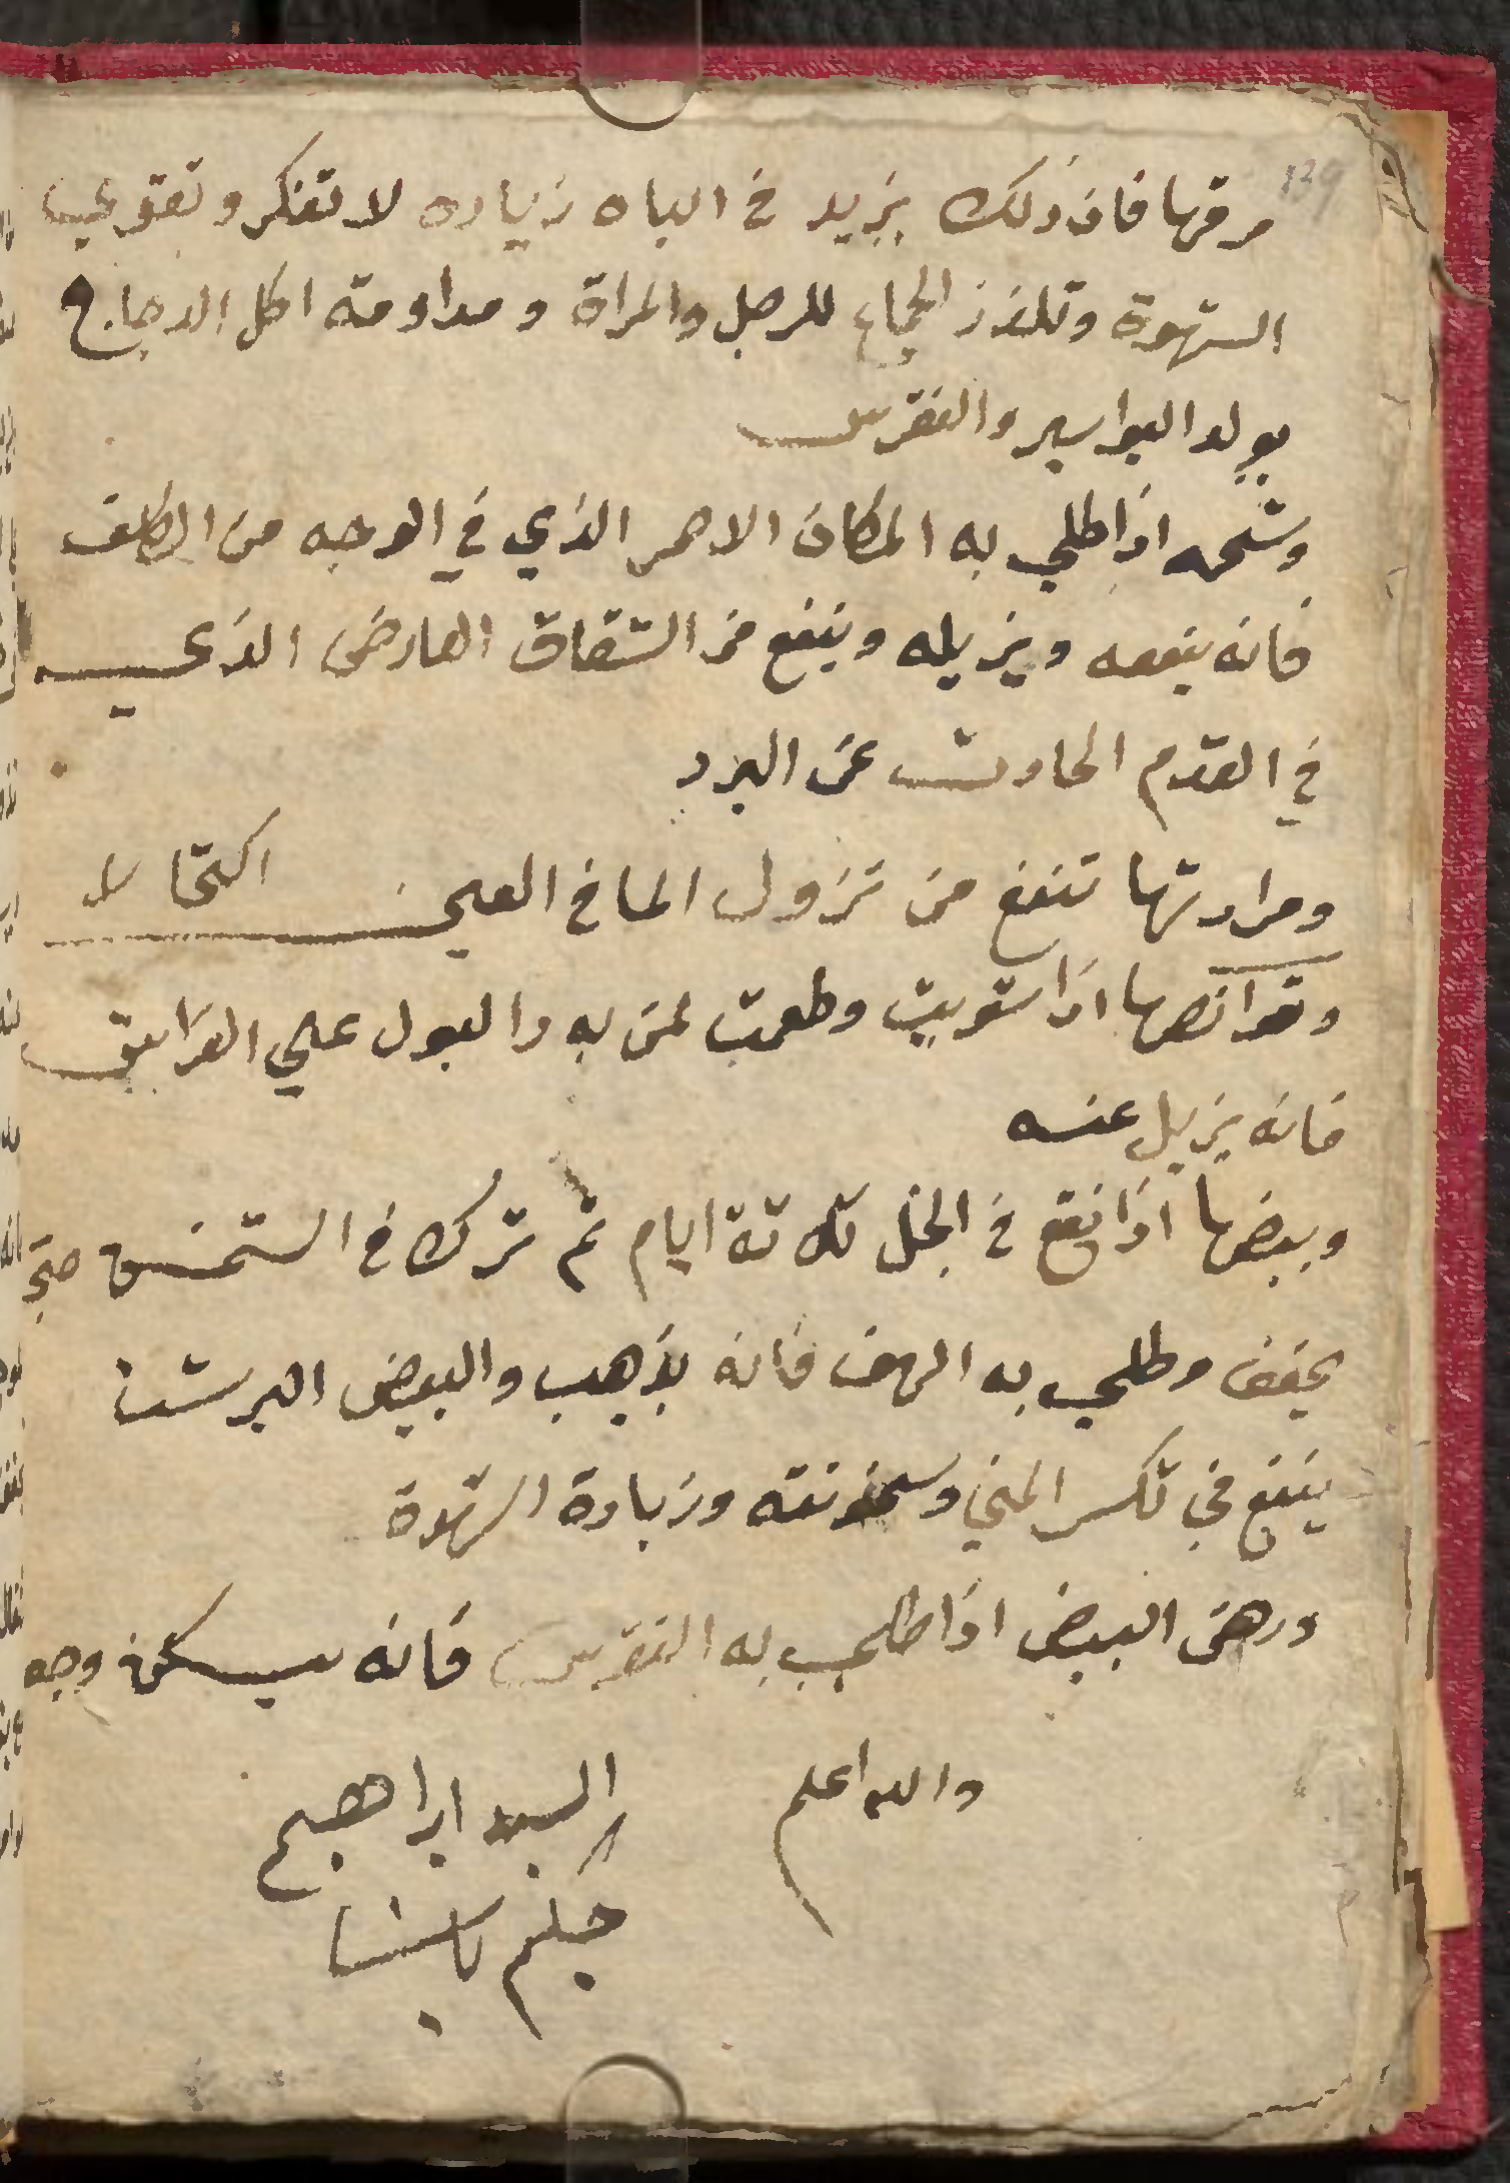 129
مرقها فان ذلك يزيد في الباه زياده لا تنكر وتقوي
الشهوة وتلذذ الجماع للرجل والمراة ومداومة اكل الدجاج
يولد البواسير والنقرس
وشحمه اذا طلي به المكان الاحمر الذي في الوجه من الكلف
فانه ينفعه ويزيله وينفع من الشقاق العارض الذي
في القدم الحادث عن البرد
ومرارتها تنفع من نزول الما في العين اكتحالا
وقوانصها اذا شويت وطعمت لمن به دا البول علي الفراش
فانه يزيل عنه
وبيضها اذا نقع في الخل ثلاثة ايام ثم ترك في الشمس حتي
يجفف وطلي به البهق فانه يذهب والبيض البرشت
ينفع في تكسر المني وسخونته وزيادة الشهوة
ودهن البيض اذا طلي به النقرس فانه يسكن وجعه
والله اعلم
السيد ابراهيم
حكيم باشا